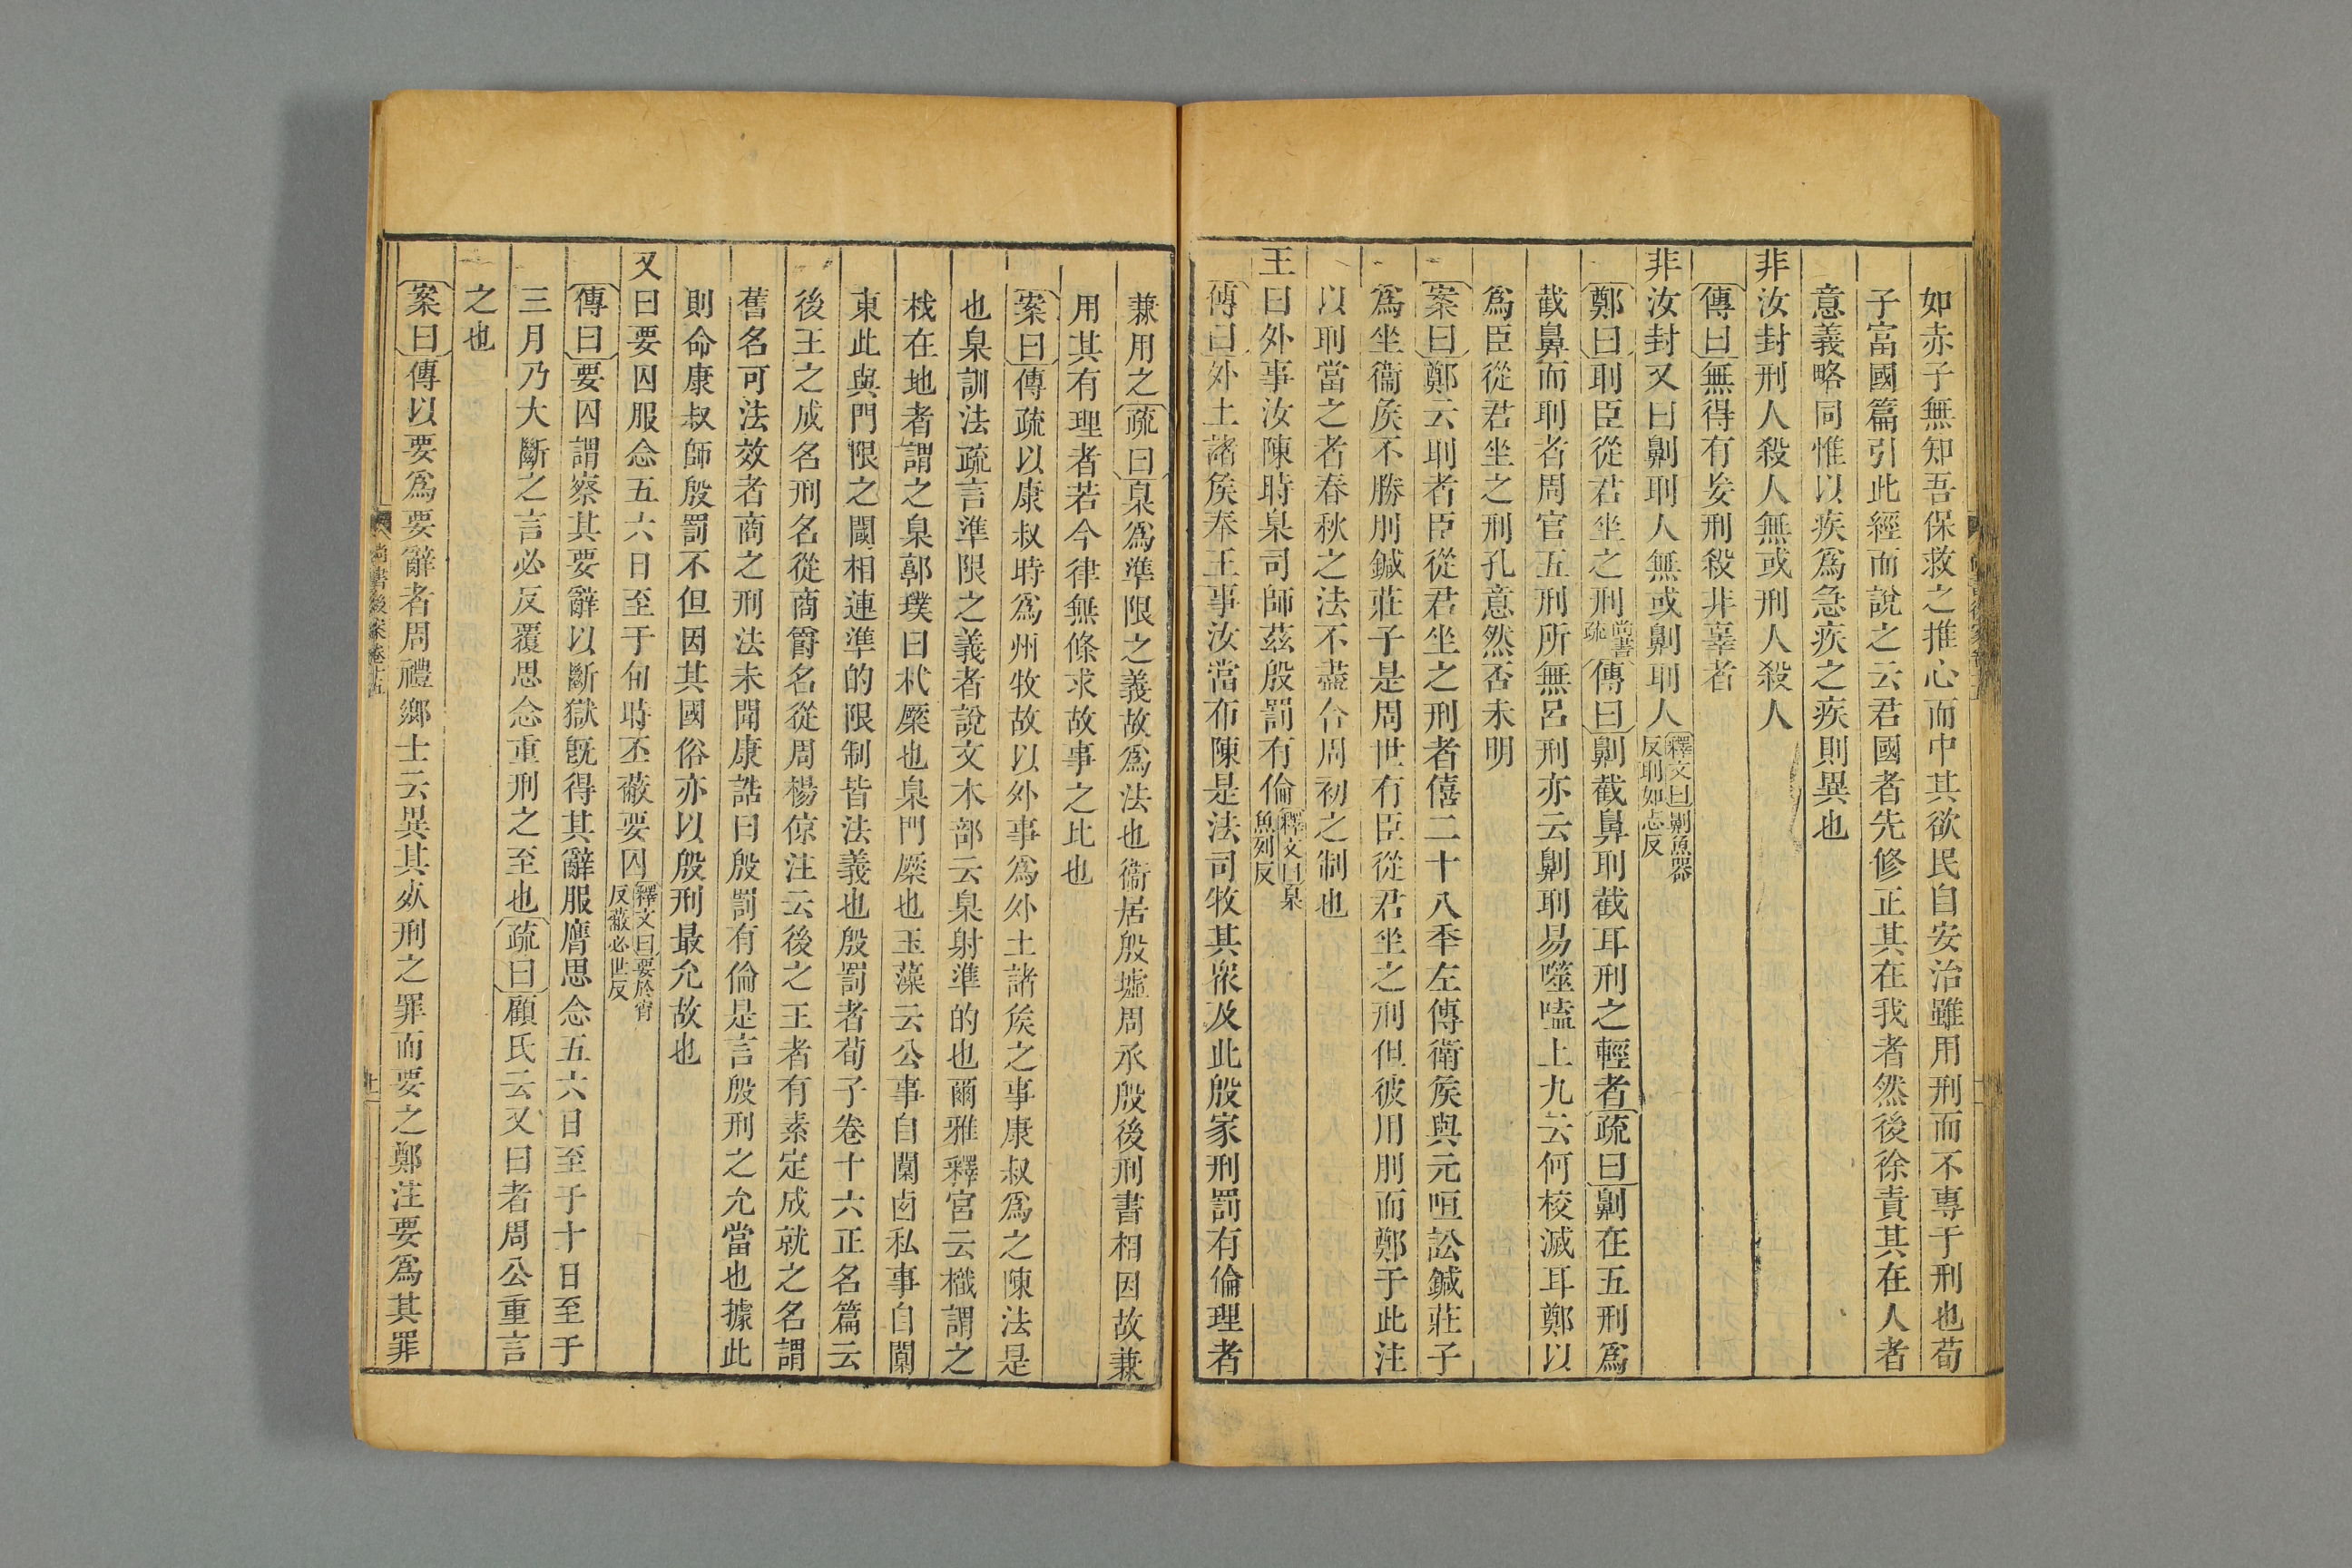 如赤子無知吾保救之推心而中其欲民自安治雖用刑而不專于刑也荀
子富國篇引此經而說之云君國者先修正其在我者然後徐責其在人者
意義略同惟以疾爲急疾之疾則異也
非汝封刑人殺人無或刑人殺人
傳曰無得有妄刑殺非辜者
非汝封又曰劓刵人無或劓刵人釋文曰劓魚器反刵如志反
鄭曰刵臣從君坐之刑尚書疏傳曰劓截鼻刵截耳刑之輕者疏曰劓在五刑爲
截鼻而刵者周官五刑所無呂刑亦云劓刵易噬嗑上九云何校滅耳鄭以
爲臣從君坐之刑孔意然否未明
案曰鄭云刵者臣從君坐之刑者僖二十八年左傳衛矦與元咺訟鍼莊子
爲坐衞矦不勝刖鍼莊子是周世有臣從君坐之刑但彼用刖而鄭于此注
以刵當之者春秋之法不盡合周初之制也
王曰外事汝陳時臬司師茲殷罰有倫釋文曰臬魚列反
傳曰外土諸矦奉王事汝當布陳是法司牧其衆及此殷家刑罰有倫理者
兼用之疏曰臬爲準限之義故爲法也衞居殷墟周承殷後刑書相因故兼
用其有理者若今律無條求故事之比也
案曰傳疏以康叔時爲州牧故以外事爲外土諸矦之事康叔爲之陳法是
也臬訓法疏言準限之義者說文木部云臬射準的也爾雅釋宮云樴謂之
杙在地者謂之臬郭璞曰杙橜也臬門橜也玉藻云公事自闑西私事自闑
東此與門限之閾相連準的限制皆法義也殷罰者荀子卷十六正名篇云
後王之成名刑名從商爵名從周楊倞注云後之王者有素定成就之名謂
舊名可法效者商之刑法未聞康誥曰殷罰有倫是言殷刑之允當也據此
則命康叔師殷罰不但因其國俗亦以殷刑最允故也
又曰要囚服念五六日至于旬時丕蔽要囚釋文曰要於宵反蔽必世反
傳曰要囚謂察其要辭以斷獄旣得其辭服膺思念五六日至于十日至于
三月乃大斷之言必反覆思念重刑之至也疏曰顧氏云又曰者周公重言
之也
案曰傳以要爲要辭者周禮鄉士云異其死刑之罪而要之鄭注要爲其罪
尚書後案卷十五